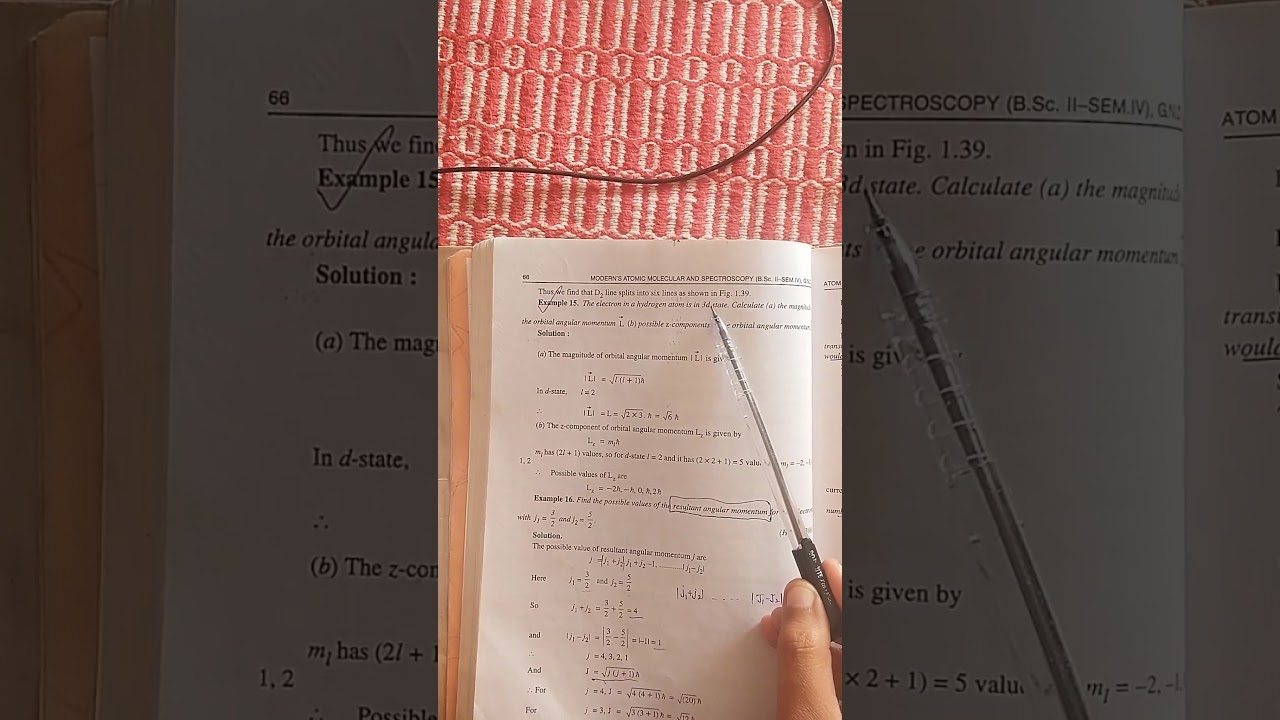 66 MODERN'S ATOMIC MOLECULAR AND SPECTROSCOPY (B.Sc. II–SEM.IV), G.N.
Thus we find that D₂ line splits into six lines as shown in Fig. 1.39.
Example 15. The electron in a hydrogen atom is in 3d state. Calculate (a) the magnitud
the orbital angular momentum L⃗ (b) possible z-components e orbital angular momentum
Solution :
(a) The magnitude of orbital angular momentum |L⃗| is giv
|L⃗| = √l (l + 1) ħ
In d-state, l = 2
∴ |L⃗| = L = √2 × 3 . ħ = √6 ħ
(b) The z-component of orbital angular momentum L_z is given by
L_z = m_l ħ
m_l has (2l + 1) values, so for d-state l = 2 and it has (2 × 2 + 1) = 5 valu m_l = –2, –1
1, 2
∴ Possible values of L_z are
L_z = –2ħ, –ħ, 0, ħ, 2ħ
Example 16. Find the possible values of the resultant angular momentum for
with j₁ = 3/2 and j₂ = 5/2
Solution.
The possible value of resultant angular momentum j are
j = |j₁ + j₂| j₁ + j₂ –1, ..........|j₁–j₂|
Here j₁ = 3/2 and j₂ = 5/2
|j₁+j₂| .... |J₁-J₂|
So j₁ + j₂ = 3/2 + 5/2 = 4
and |j₁ – j₂| = |3/2 – 5/2| = |–1| = 1
∴ j = 4, 3, 2, 1
And J = √j (j + 1) ħ
∴ For j = 4, J = √4 (4 + 1) ħ = √(20) ħ
For j = 3, J = √3 (3 + 1) ħ = √12 ħ
ATOM
trans
would
curre
num